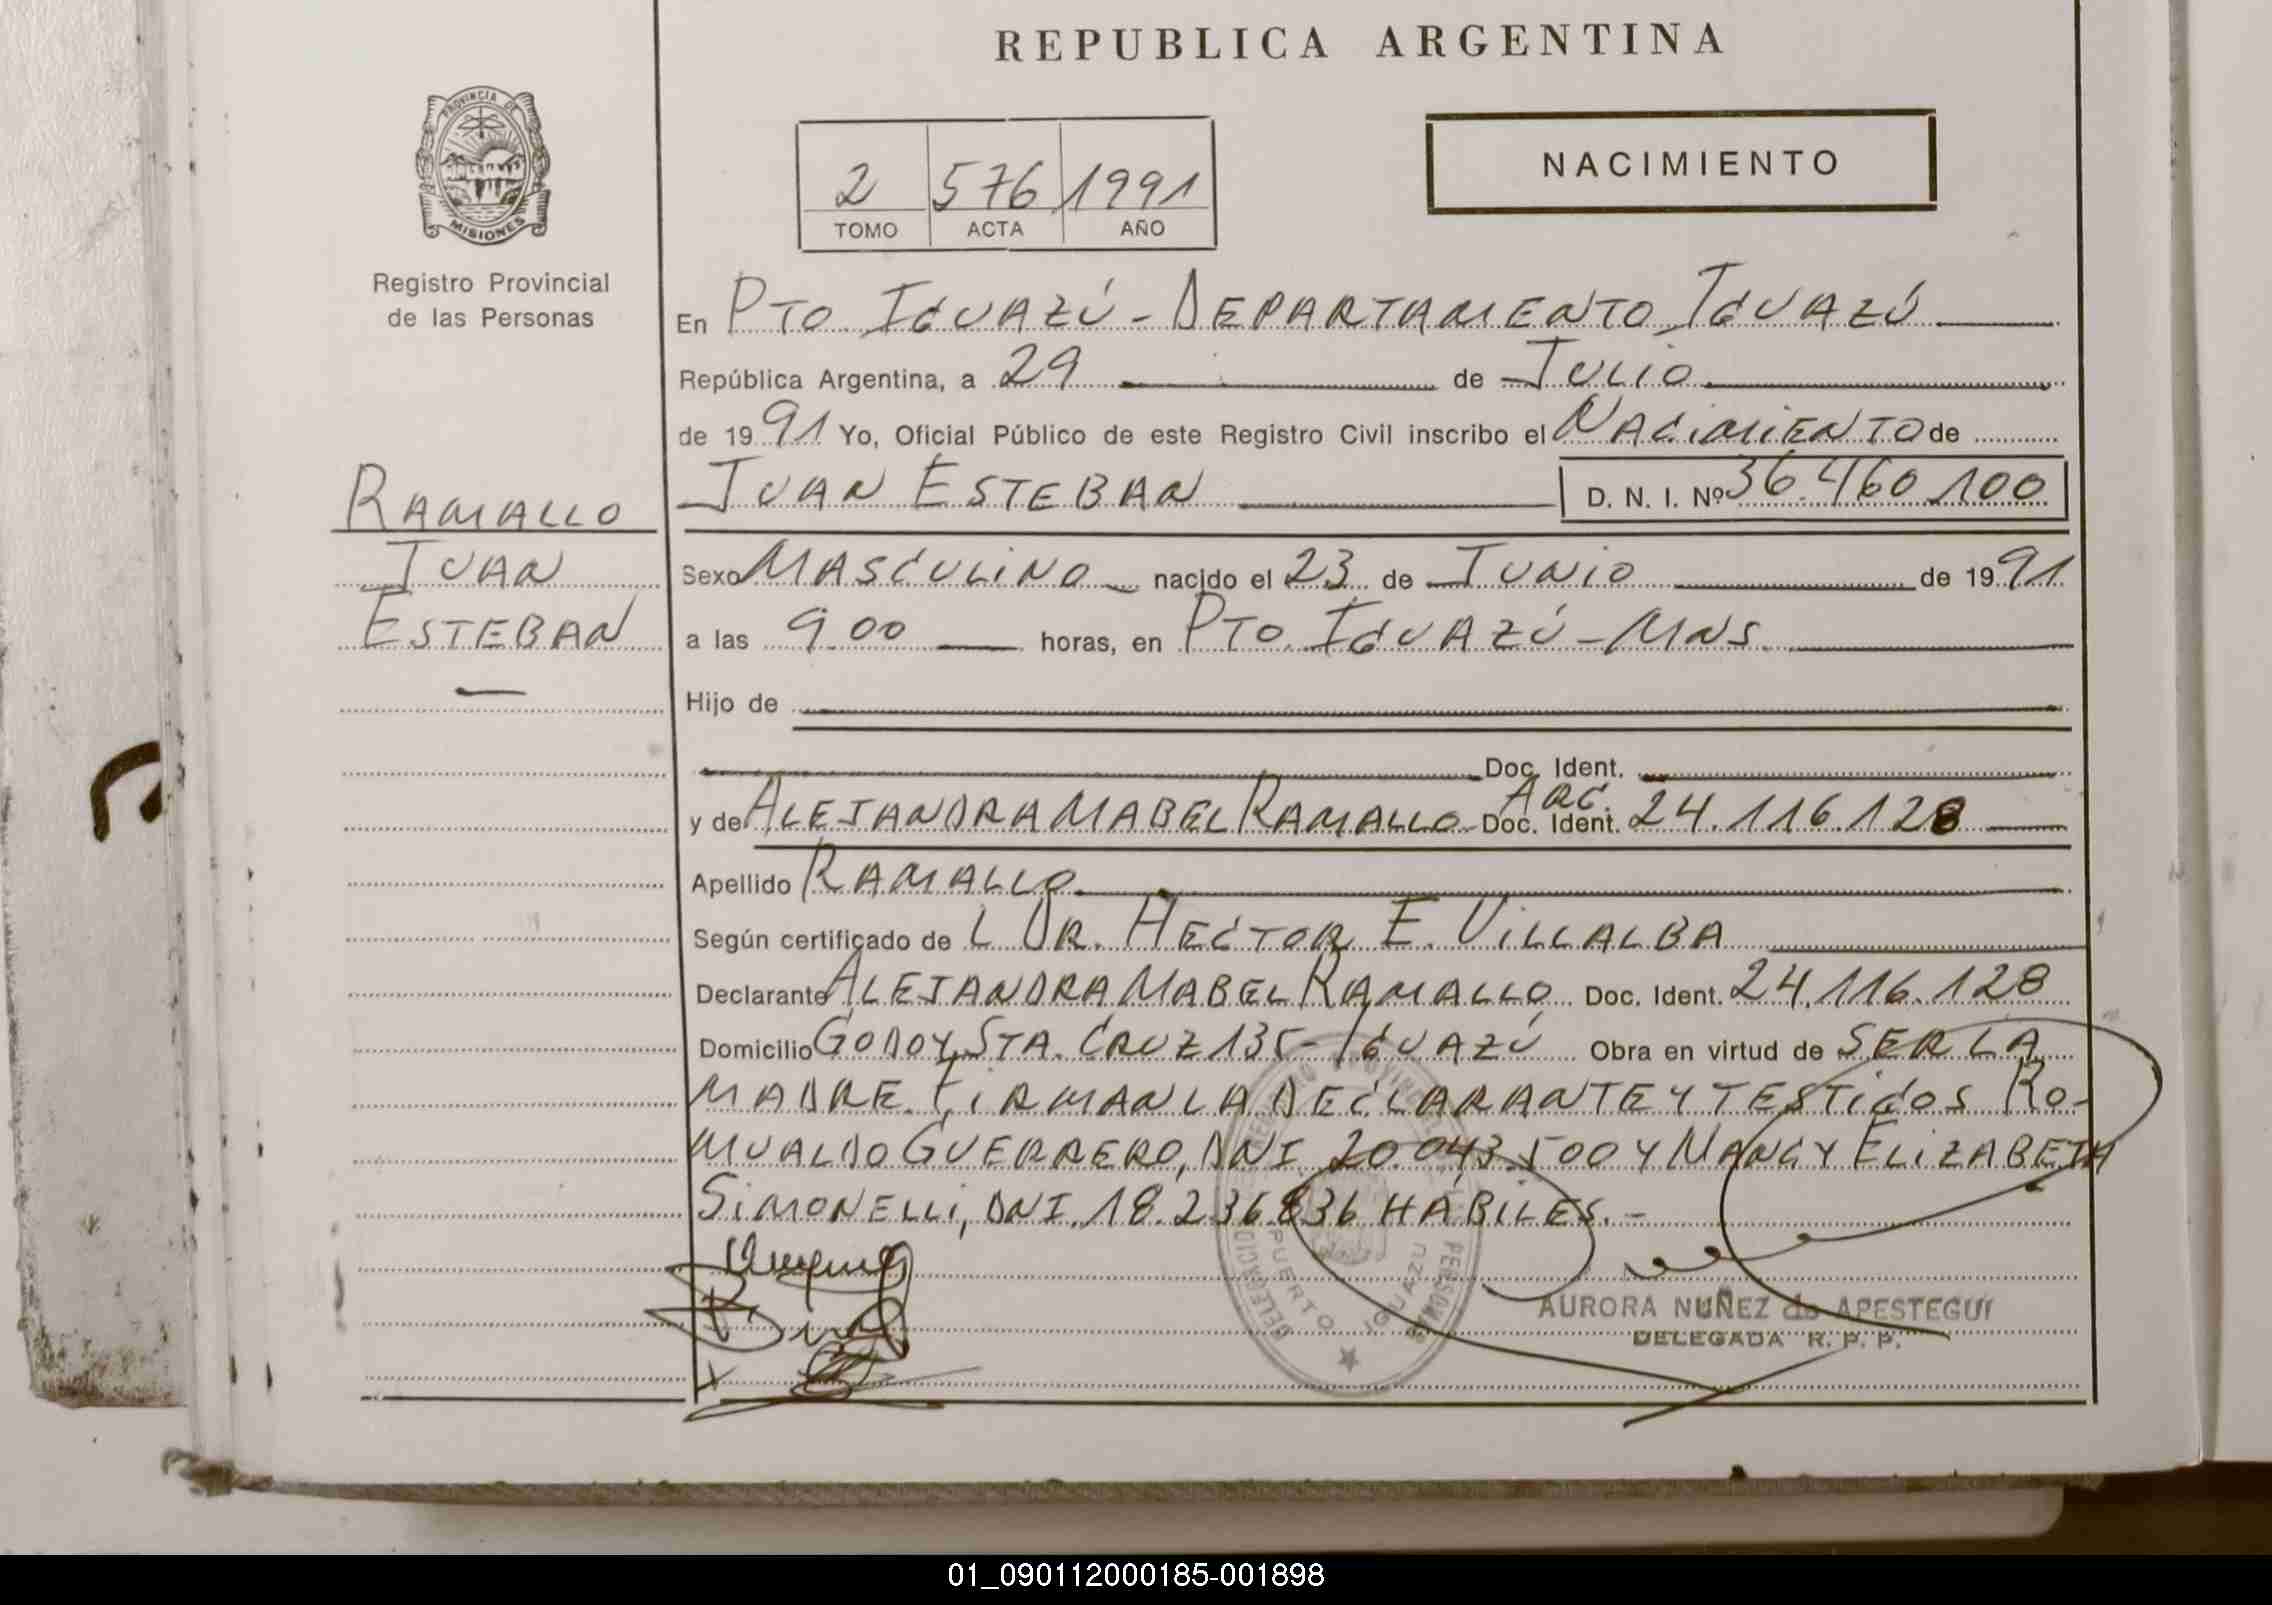 REPUBLICA ARGENTINA
PROVINCIA DE
MISIONES
Registro Provincial
de las Personas
NACIMIENTO
2 576 1991
TOMO ACTA AÑO
En PTO IGUAZÚ - DEPARTAMENTO IGUAZÚ
República Argentina, a 29 de JULIO
de 1991 Yo, Oficial Público de este Registro Civil inscribo el NACIMIENTO de
JUAN ESTEBAN D. N. I. Nº 36.460.100
RAMALLO
JUAN
ESTEBAN
Sexo MASCULINO nacido el 23 de JUNIO de 1991
a las 9.00 horas, en PTO. IGUAZÚ - MNS.
Hijo de
Doc. Ident.
y de ALEJANDRA MABEL RAMALLO Doc. Ident. ARG. 24.116.128
Apellido RAMALLO
Según certificado de L DR. HECTOR E. VILLALBA
Declarante ALEJANDRA MABEL RAMALLO Doc. Ident. 24.116.128
Domicilio GODOY STA. CRUZ 135 - IGUAZÚ Obra en virtud de SER LA
MADRE. FIRMAN LA DECLARANTE Y TESTIGOS RO-
MUALDO GUERRERO, DNI 20.043.500 Y NANCY ELIZABETH
SIMONELLI, DNI. 18.236.836 HÁBILES. -
PUERTO IGUAZU
AURORA NUÑEZ de APESTEGUI
DELEGADA R. P. P.
01_090112000185-001898